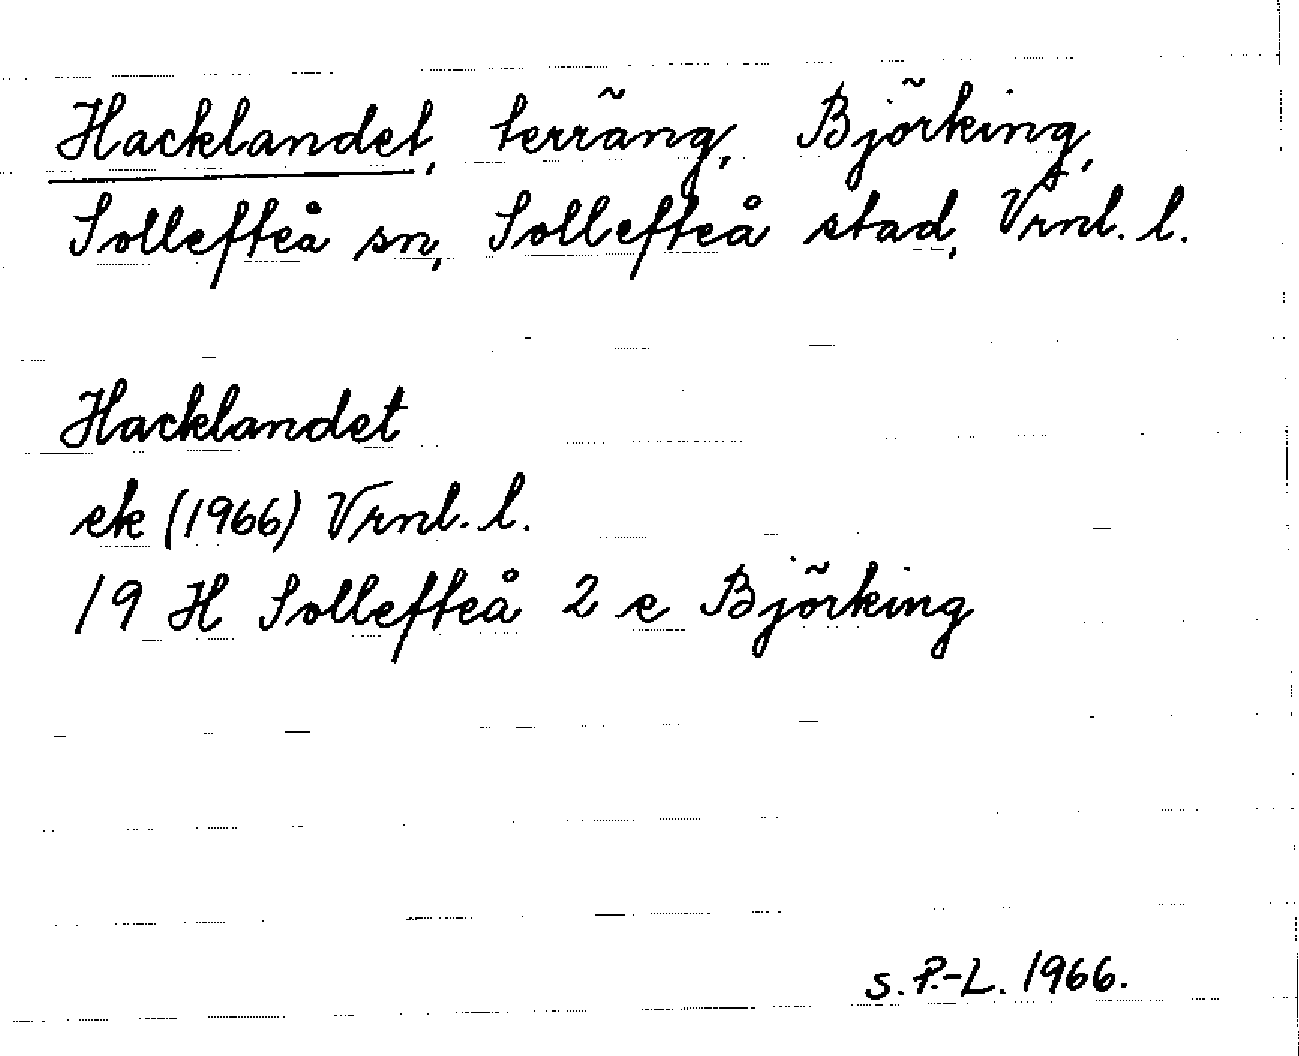 Hacklandet, terräng, Björking,
Sollefteå sn, Sollefteå stad, Vrnl. l.
Hacklandet
ek (1966) Vrnl. l.
19 H Sollefteå 2 e Björking
S. P.-L. 1966.